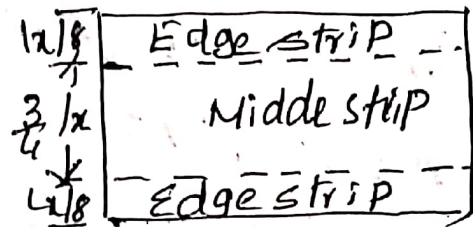 lx/8 Edge strip
3/4 lx Midde strip
Lx/8 Edge strip